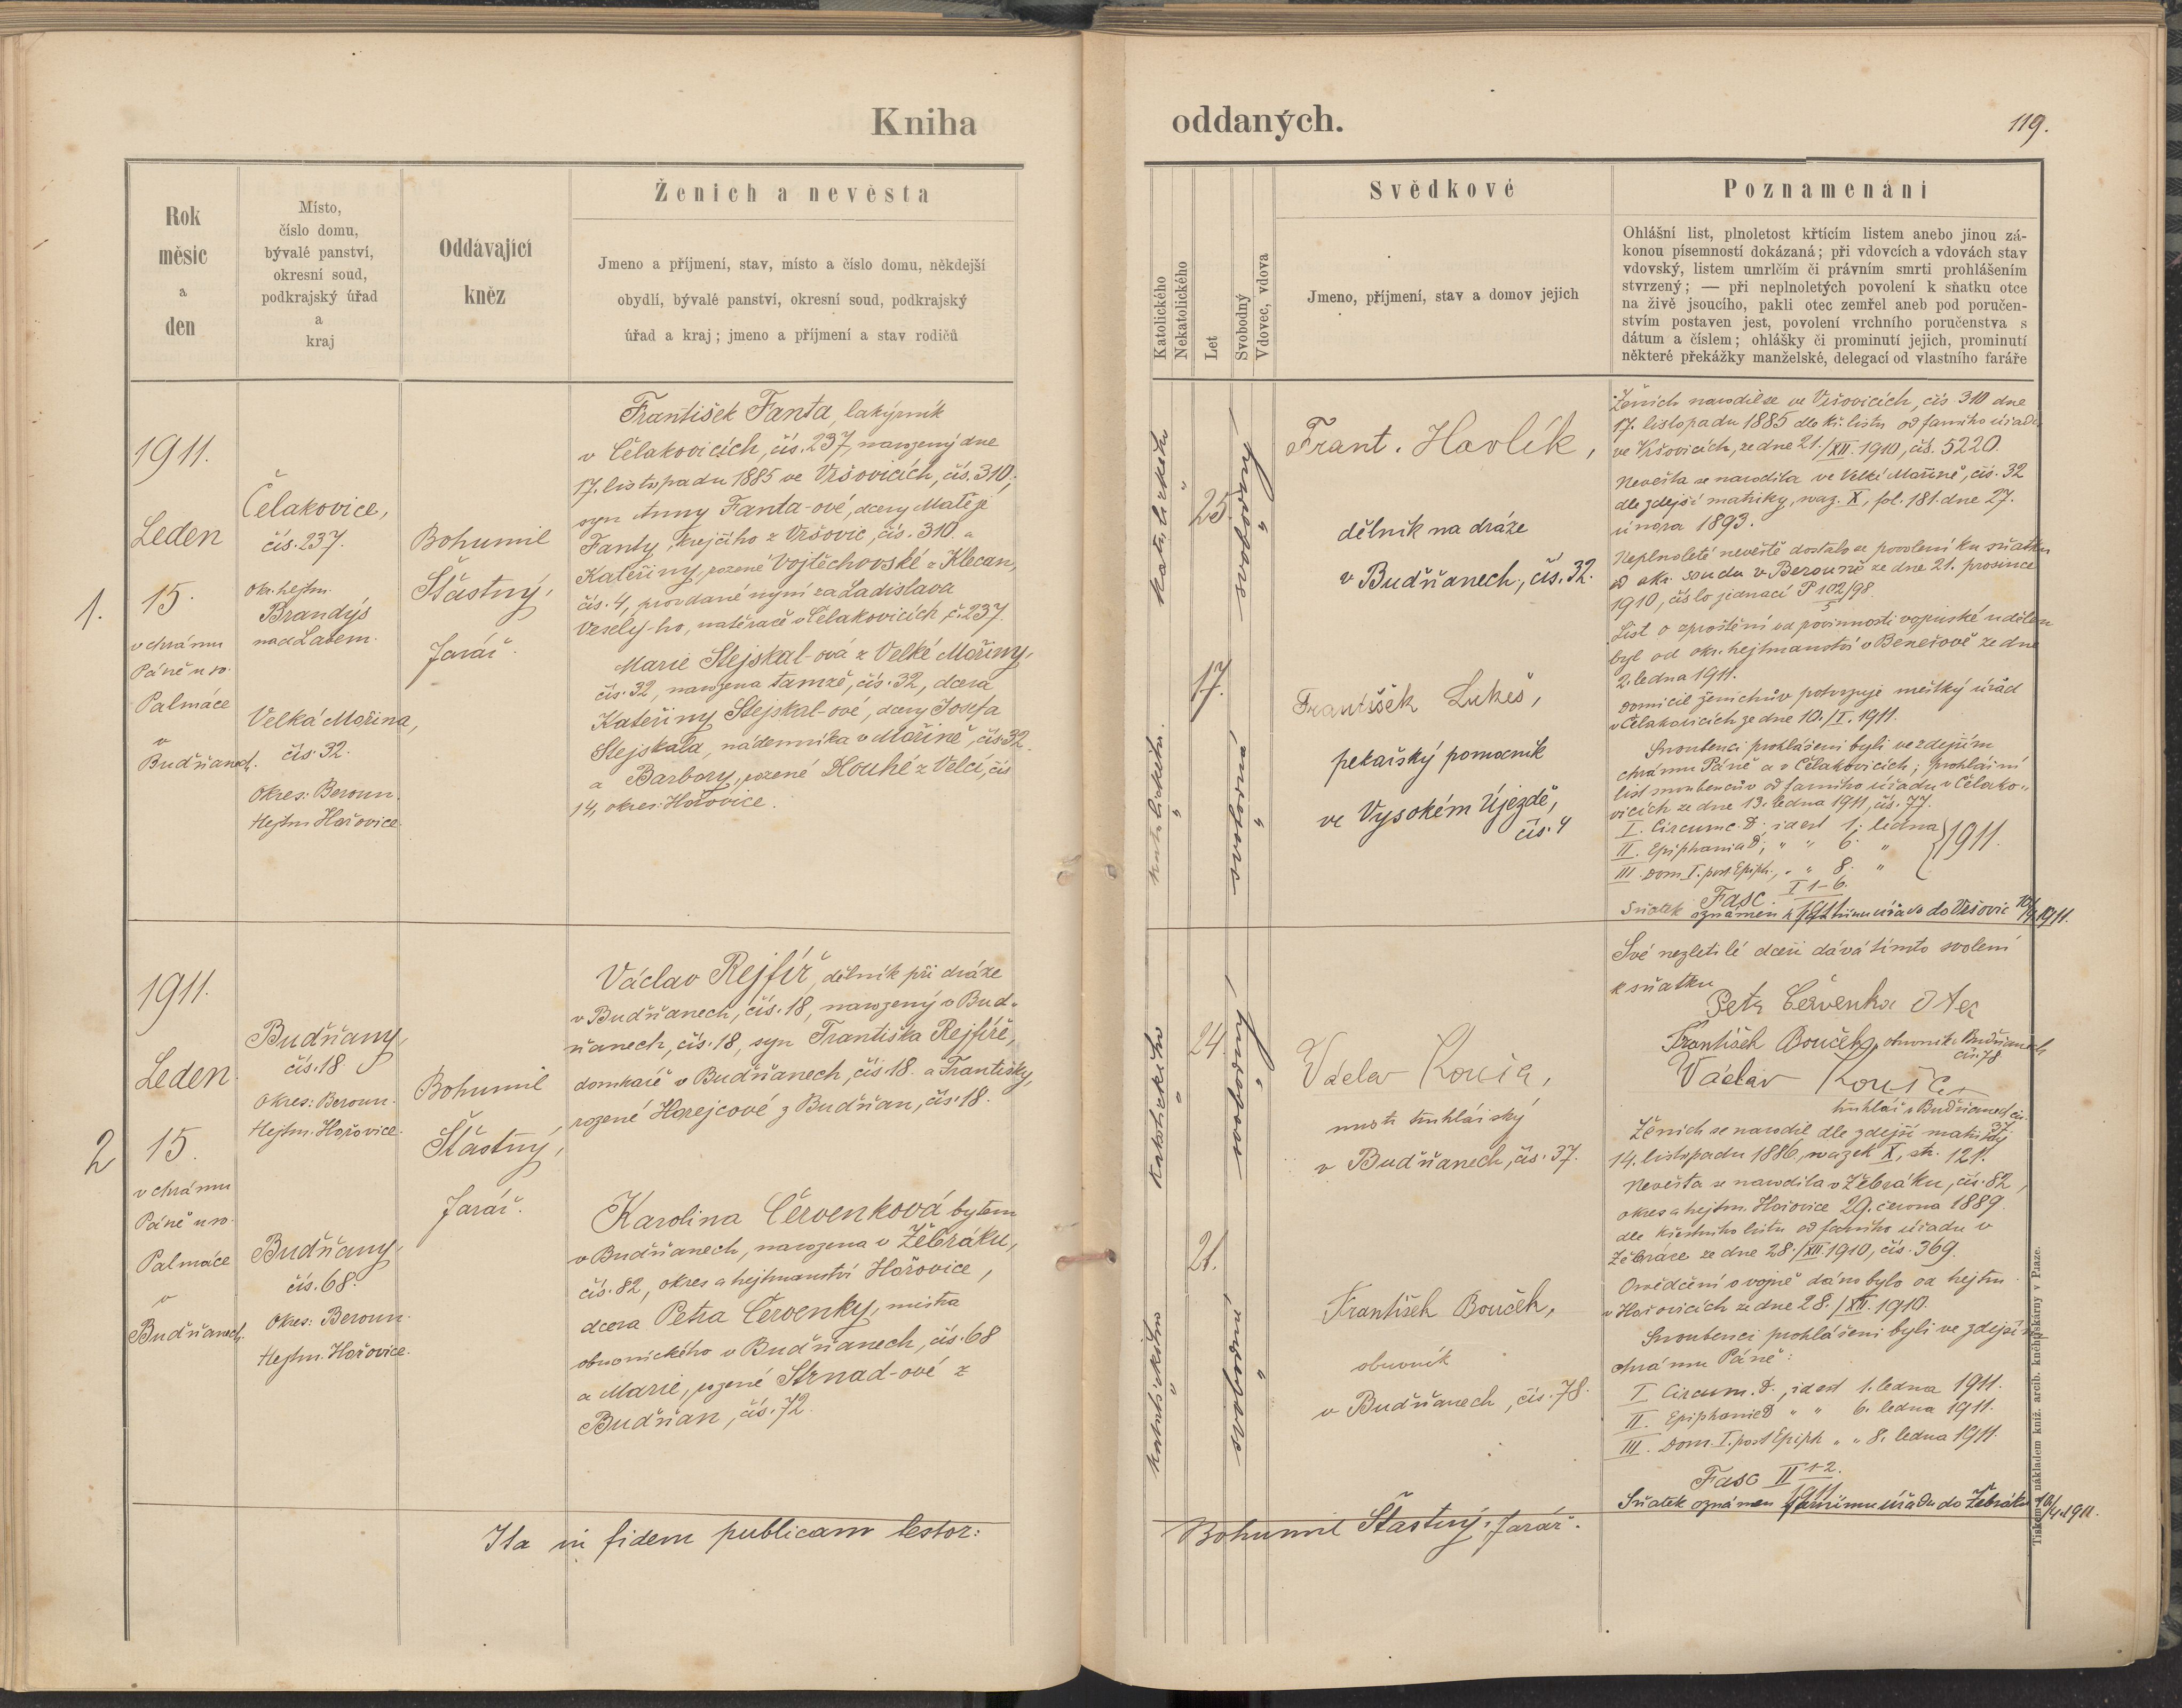 Kniha
oddaných.
119.
Rok
měsíc
a
den
Místo,
číslo domu,
bývalé panství,
okresní soud,
podkrajský úřad
a
kraj
Oddávající
kněz
Ženich a nevěsta
Jmeno a příjmení, stav, místo a číslo domu, někdejší
obydlí, bývalé panství, okresní soud, podkrajský
úřad a kraj; jmeno a příjmení a stav rodičů
Katolického
Nekatolického
Let
Svobodný
Vdovec, vdova
Svědkové
Jmeno, příjmení, stav a domov jejich
Poznamenání
Ohlášní list, plnoletost křticím listem anebo jinou zá-
konou písemností dokázaná; při vdovcích a vdovách stav
vdovský, listem umrlčím či právním smrti prohlášením
stvrzený; — při neplnoletých povolení k sňatku otce
na živě jsoucího, pakli otec zemřel aneb pod poručen-
stvím postaven jest, povolení vrchního poručenstva s
dátum a číslem; ohlášky či prominutí jejich, prominutí
některé překážky manželské, delegací od vlastního faráře
1.
1911.
Leden
15.
v chrámu
Páně u sv.
Palmáce
v
Budňanech.
Čelakovice,
čís. 237.
okr. hejtm.
Brandýs
nad Labem.
Velká Mořina,
čís. 32.
Okres: Beroun.
Hejtm. Hořovice.
Bohumil
Šťastný,
farář.
František Fanta, lakýrník
v Čelakovicích, čís. 237, narozený dne
17. listopadu 1885 ve Vršovicích, čís. 310,
syn Anny Fanta-ové, dcery Matěje
Fanty, krejčího z Vršovic, čís. 310. a
Kateřiny, rozené Vojtěchovské z Klecan,
čís. 4, provdané nyní za Ladislava
Veselý-ho, natěrače v Čelakovicích č. 237.
Marie Stejskal-ová z Velké Mořiny,
čís. 32, narozena tamže, čís. 32, dcera
Kateřiny Stejskal-ové, dcery Josefa
Stejskala, nádenníka v Mořině, čís. 32.
a Barbory, rozené Houhé z Velcí, čís
14, okres: Hořovice.
katolického
"
25.
svobodný
"
17.
katolického.
"
svobodná
"
Frant. Havlík,
dělník na dráze
v Budňanech, čís. 32.
František Lukeš,
pekařský pomocník
ve Vysokém Újezdě,
čís. 4
Ženich narodil se ve Vršovicích, čís. 310 dne
17. listopadu 1885 dle kř. listu od farního úřadu
ve Vršovicích, ze dne 21./XII. 1910, čís. 5220.
Nevěsta se narodila ve Velké Mořině, čís. 32
dle zdejší matriky, svaz. X, fol. 181. dne 27.
února 1893.
Neplnoleté nevěstě dostalo se povolení ku sňatku
od okr. soudu v Berouně ze dne 21. prosince
1910, číslo jednací P 102/98
5
List o zproštění od povinnosti vojenské udělen
byl od okr. hejtmanství v Benešově ze dne
2. ledna 1911.
Domicil ženichův potvrzuje městký úřad
v Čelakovicích ze dne 10./I. 1911.
Snoubenci prohlášeni byli ve zdejším
chrámu Páně a v Čelakovicích; prohlášní
list snoubencův od farního úřadu v Čelako-
vicích ze dne 13. ledna 1911, čís. 77.
I. Circumc. D. id est 1. ledna
II. Epiphania D., " " 6. "
III. Dom. I. post Epiph., " " 8. "
1911.
Fasc. I 1-6.
1911
Sňatek oznámen farnímu úřadu do Vršovic
2
1911.
Leden.
15.
v chrámu
Páně u sv.
Palmáce
v
Budňanech.
Budňany,
čís. 18.
Okres: Beroun.
Hejtm. Hořovice.
Budňany,
čís. 68.
Okres: Beroun.
Hejtm. Hořovice.
Bohumil
Šťastný,
farář.
Václav Rejfíř, dělník při dráze
v Budňanech, čís. 18, narozený v Bud-
ňanech, čís. 18, syn Františka Rejfíře,
domkáře v Budňanech, čís 18. a Františky,
rozené Horejcové z Budňan, čís. 18.
Karolina Červenková bytem
v Budňanech, narozena v Žebráku,
čís. 82, okres a hejtmanství Hořovice,
dcera Petra Červenky, mistra
obuvnického v Budňanech, čís. 68
a Marie, rozené Strnad-ové z
Budňan, čís. 72.
katolického
"
24.
svobodný
"
21.
katolického
"
svobodná
"
Václav Kouřa,
mistr truhlářský
v Budňanech, čís. 37.
František Bouček,
obuvník
v Budňanech, čís. 78.
Své nezletilé dceři dává tímto svolení
k sňatku
Petr Červenka otec
František Bouček, obuvník v Budňanech
čís. 78
Václav
truhlář v Budňanech čís.
37.
Ženich se narodil dle zdejší matriky
14. listopadu 1886, svazek X, str. 121.
Nevěsta se narodila v Žebráku, čís. 82,
okres a hejtm. Hořovice 29. června 1889.
dle křestního listu od farního úřadu v
Žebráce ze dne 28./XII. 1910, čís. 369.
Osvědčení o vojně dáno bylo od hejtm.
v Hořovicích ze dne 28./XII. 1910.
Snoubenci prohlášeni byli ve zdejším
chrámu Páně:
I. Circum. D., id est 1. ledna 1911.
II. Epiphanie D " " 6. ledna 1911.
III. Dom. I. post Epiph " " 8. ledna 1911.
Fasc II 1-2.
1911
Sňatek oznámen farnímu úřadu do Žebráku
Ita in fidem publicam testor:
Bohumil Šťastný, farář.
Tiskem a nákladem kníž. arcib. kněhtiskárny v Praze.